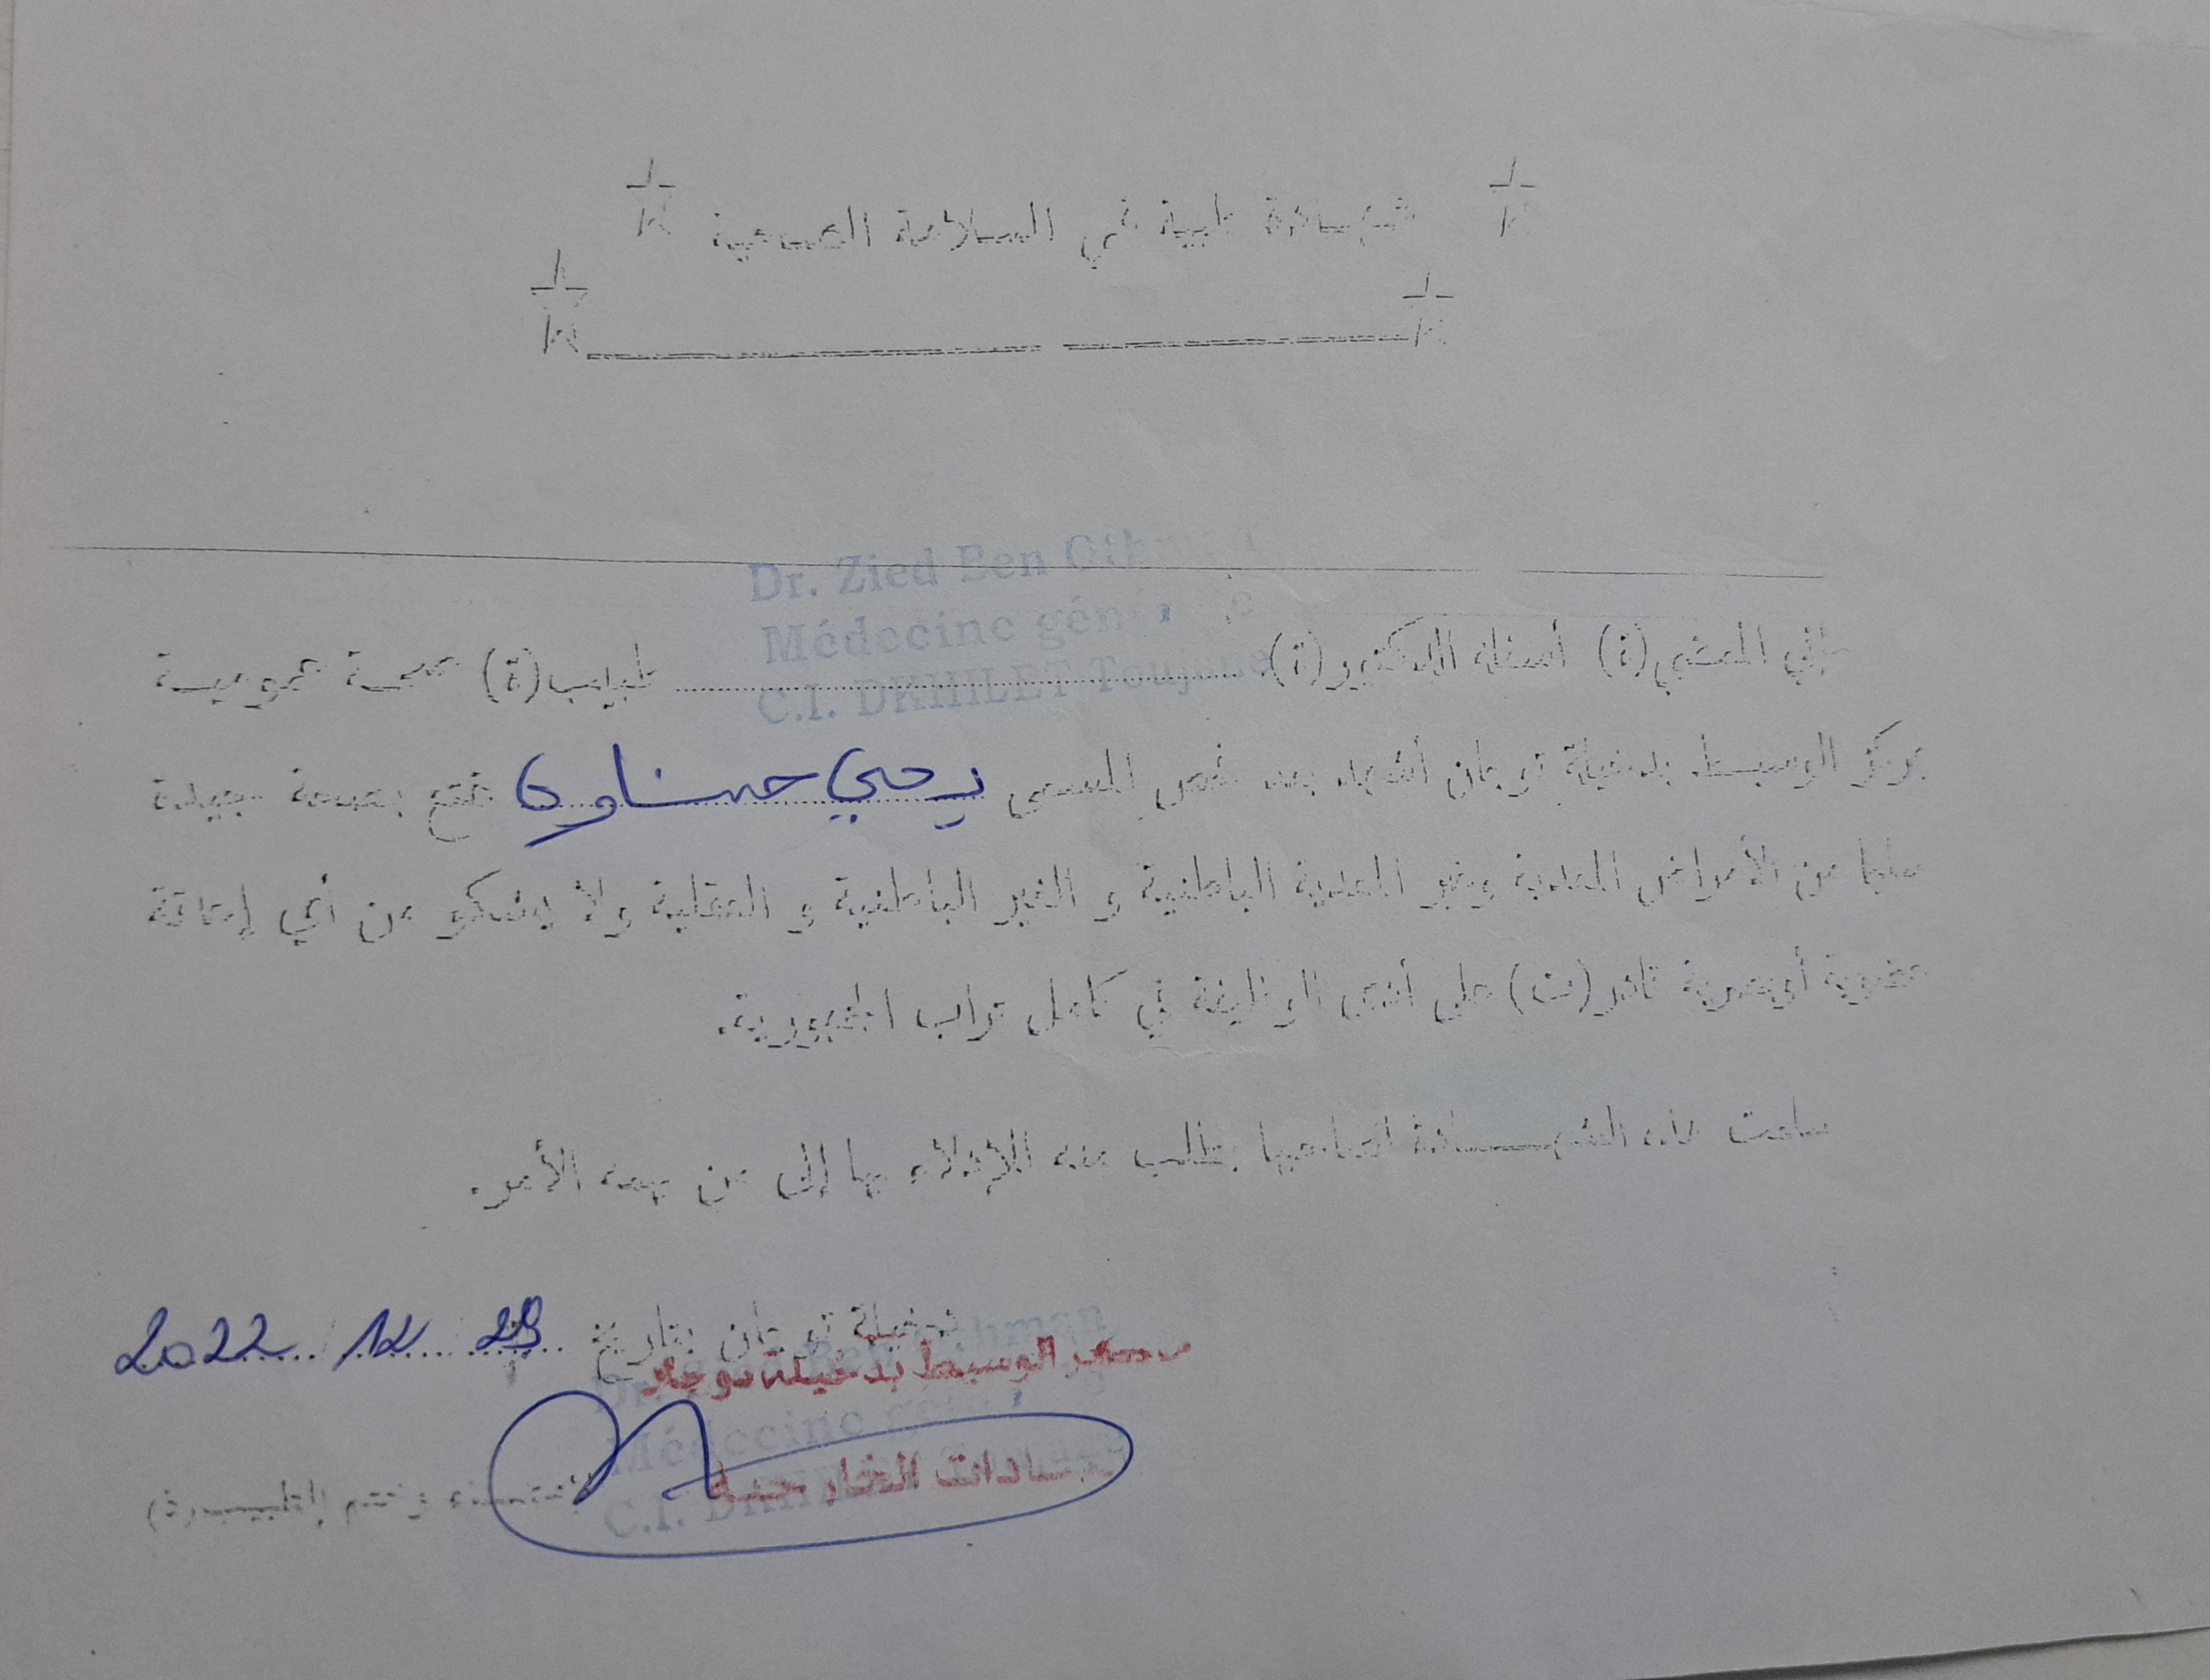 شهادة طبية في السلامة الصحية
Dr. Zied Ben Othman
Médecine générale
C.I. DKHILET Toujane
إني الممضي(ة) أسفله الدكتور(ة) طبيب(ة) صحة عمومية
بمركز الوسيط بدخيلة توجان أشهد بعد فحص المسمى يحي حسناوي يتمتع بصحة جيدة
سليما من الأمراض المعدية وغير المعدية الباطنية و الغير الباطنية و العقلية ولا يشكو من أي إعاقة
عضوية أوبصرية قادر(ت) على أدى الوظيفة في كامل تراب الجمهورية.
سلمت هذه الشهادة لصاحبها بطلب منه للإدلاء بها إلى من يهمه الأمر.
دخيلة توجان بتاريخ 29 / 12 / 2022
مركز الوسيط بدخيلة توجان
Dr. Zied Ben Othman
Médecine générale
العيادات الخارجية
C.I. DKHILET Toujane
إمضاء وختم الطبيب(ة)